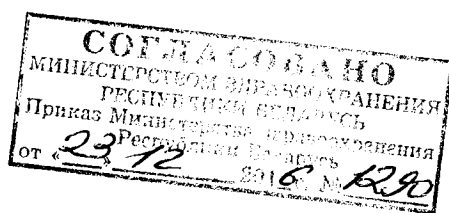 СОГЛАСОВАНО
МИНИСТЕРСТВОМ ЗДРАВООХРАНЕНИЯ
РЕСПУБЛИКИ БЕЛАРУСЬ
Приказ Министерства здравоохранения
Республики Беларусь
от «23» 12 2016 г. № 1290